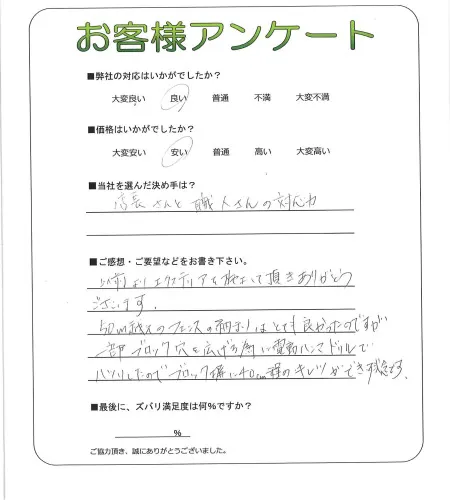 お客様アンケート
■弊社の対応はいかがでしたか？
大変良い 良い 普通 不満 大変不満
■価格はいかがでしたか？
大変安い 安い 普通 高い 大変高い
■当社を選んだ決め手は？
店長さんと職人さんの対応力
■ご感想・ご要望などをお書き下さい。
以前よりエクステリアを施工して頂きありがとう
ございます。
50m越えのフェンスの柄ホリはとても良かったのですが
一部ブロック穴を広げる為に電動ハンマドリルで
ハツリしたのでブロック塀に40cm程のキレツができ
■最後に、ズバリ満足度は何％ですか？
％
ご協力頂き、誠にありがとうございました。